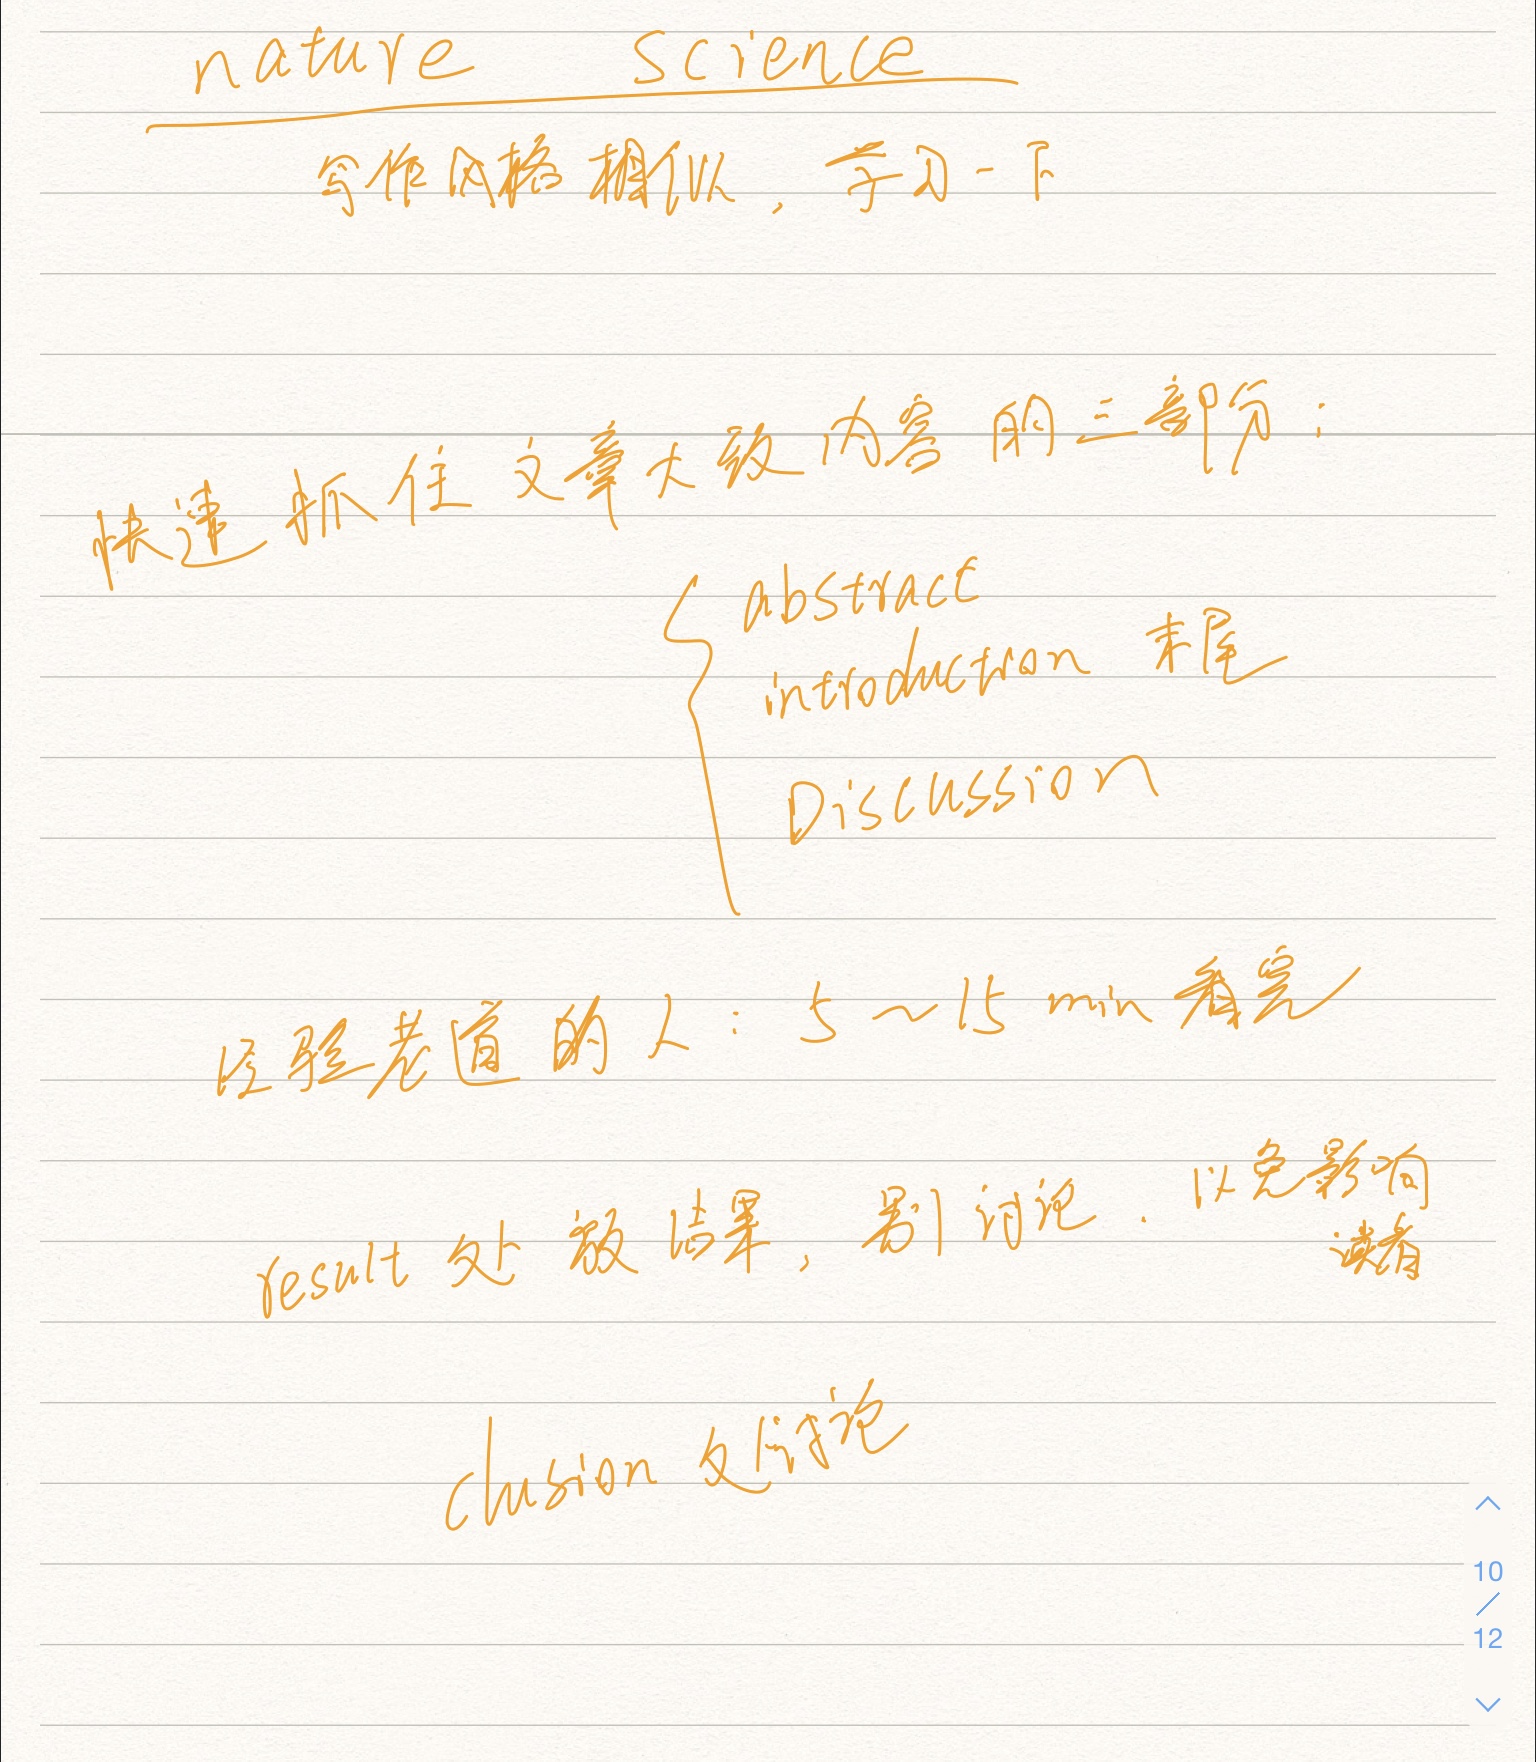 nature science
写作风格相似，学习一下
快速抓住文章大致内容的三部分：
abstract
introduction 末尾
Discussion
经验老道的人：5～15 min 看完
result 处放结果，别讨论．以免影响
读者
clusion 处讨论
10
/
12